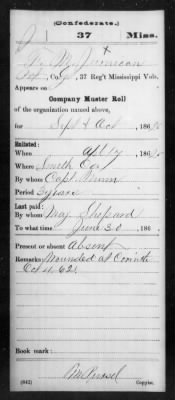 (Confederate.)
J 37 Miss.
Co. G, 37 Reg't Mississippi Vols.
Appears on
Company Muster Roll
of the organization named above,
for Sept & Oct, 186
Enlisted:
When Apl 17, 186
Where Smith Co
By whom Capt
Period 3 years
Last paid:
By whom Maj. Shepard
To what time June 30, 186
Present or absent Absent
Remarks: Wounded at Corinth
Oct 4. 62.
Book mark:
(642) Copyist.